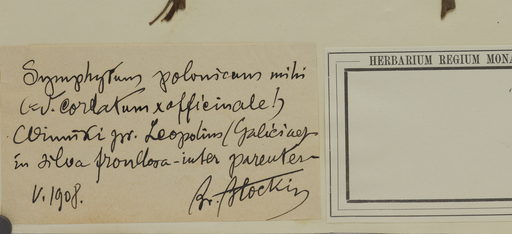 Symphytum polonicum mihi
(= S. cordatum x officinale!)
Winniki pr. Leopolim (Galiciae)
in silva frondosa - inter parentes -
V. 1908.
Br. Błocki
HERBARIUM REGIUM MONA